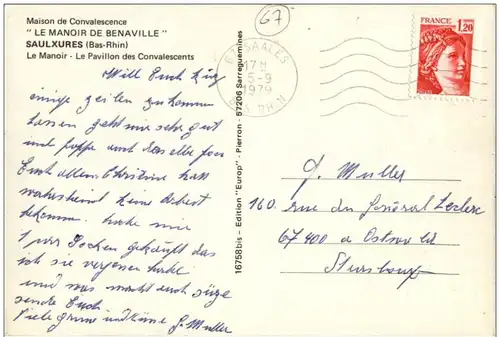 Maison de Convalescence
" LE MANOIR DE BENAVILLE "
SAULXURES (Bas-Rhin)
Le Manoir - Le Pavillon des Convalescents
67
67 SAALES
17 H
5-9
1979
BAS RHIN
FRANCE
1,20
Will Euch kurz
einige zeilen zu kommen
lassen geht mir sehr gut
und hoffe auch das selbe von
Euch allen Christine hat
wahrscheind keine Arbeit
bekommen. habe mir
1 par Socken gekauft das
ich sie vergessen habe
und was macht euch
sende Euch
viele grüsse und küsse G. Muller
16758bis - Edition "Europ" - Pierron - 57206 Sarreguemines
G. Muller
160. rue du Général Leclerc
67400 à Ostwald
Strasbourg